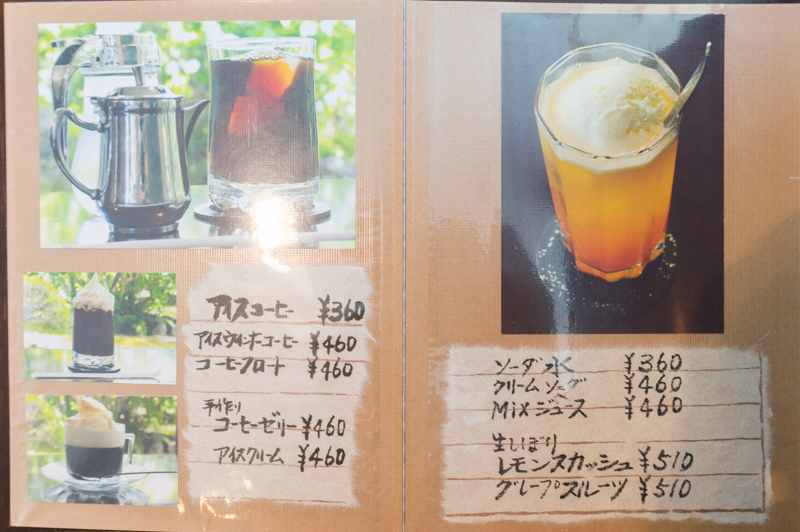 アイスコーヒー ¥360
アイスウィンナーコーヒー ¥460
コーヒーフロート ¥460
手作り
コーヒーゼリー ¥460
アイスクリーム ¥460
ソーダ水 ¥360
クリームソーダ ¥460
MiXジュース ¥460
生しぼり
レモンスカッシュ ¥510
グレープフルーツ ¥510